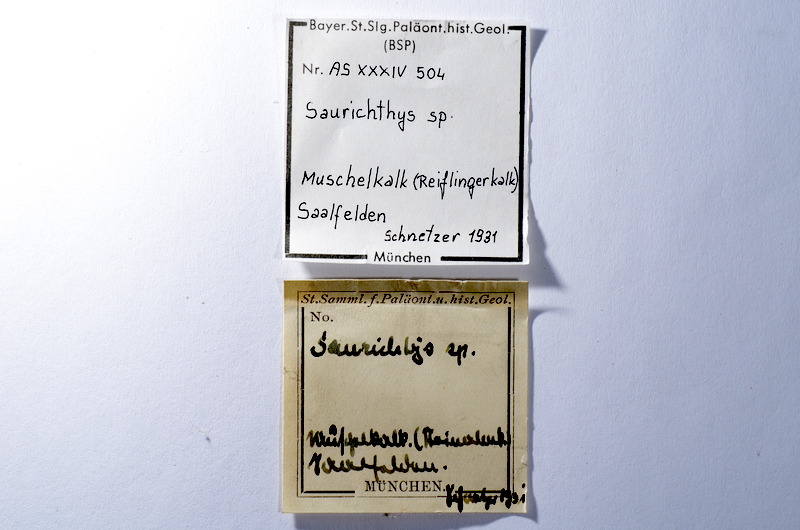 Bayer.St.Slg.Paläont.hist.Geol.
(BSP)
Nr. AS XXXIV 504
Saurichthys sp.
Muschelkalk (Reiflingerkalk)
Saalfelden
Schnetzer 1931
München
St.Samml.f.Paläont.u.hist.Geol.
No.
Saurichthys sp.
Muschelkalk.
Saalfelden.
MÜNCHEN.
1931